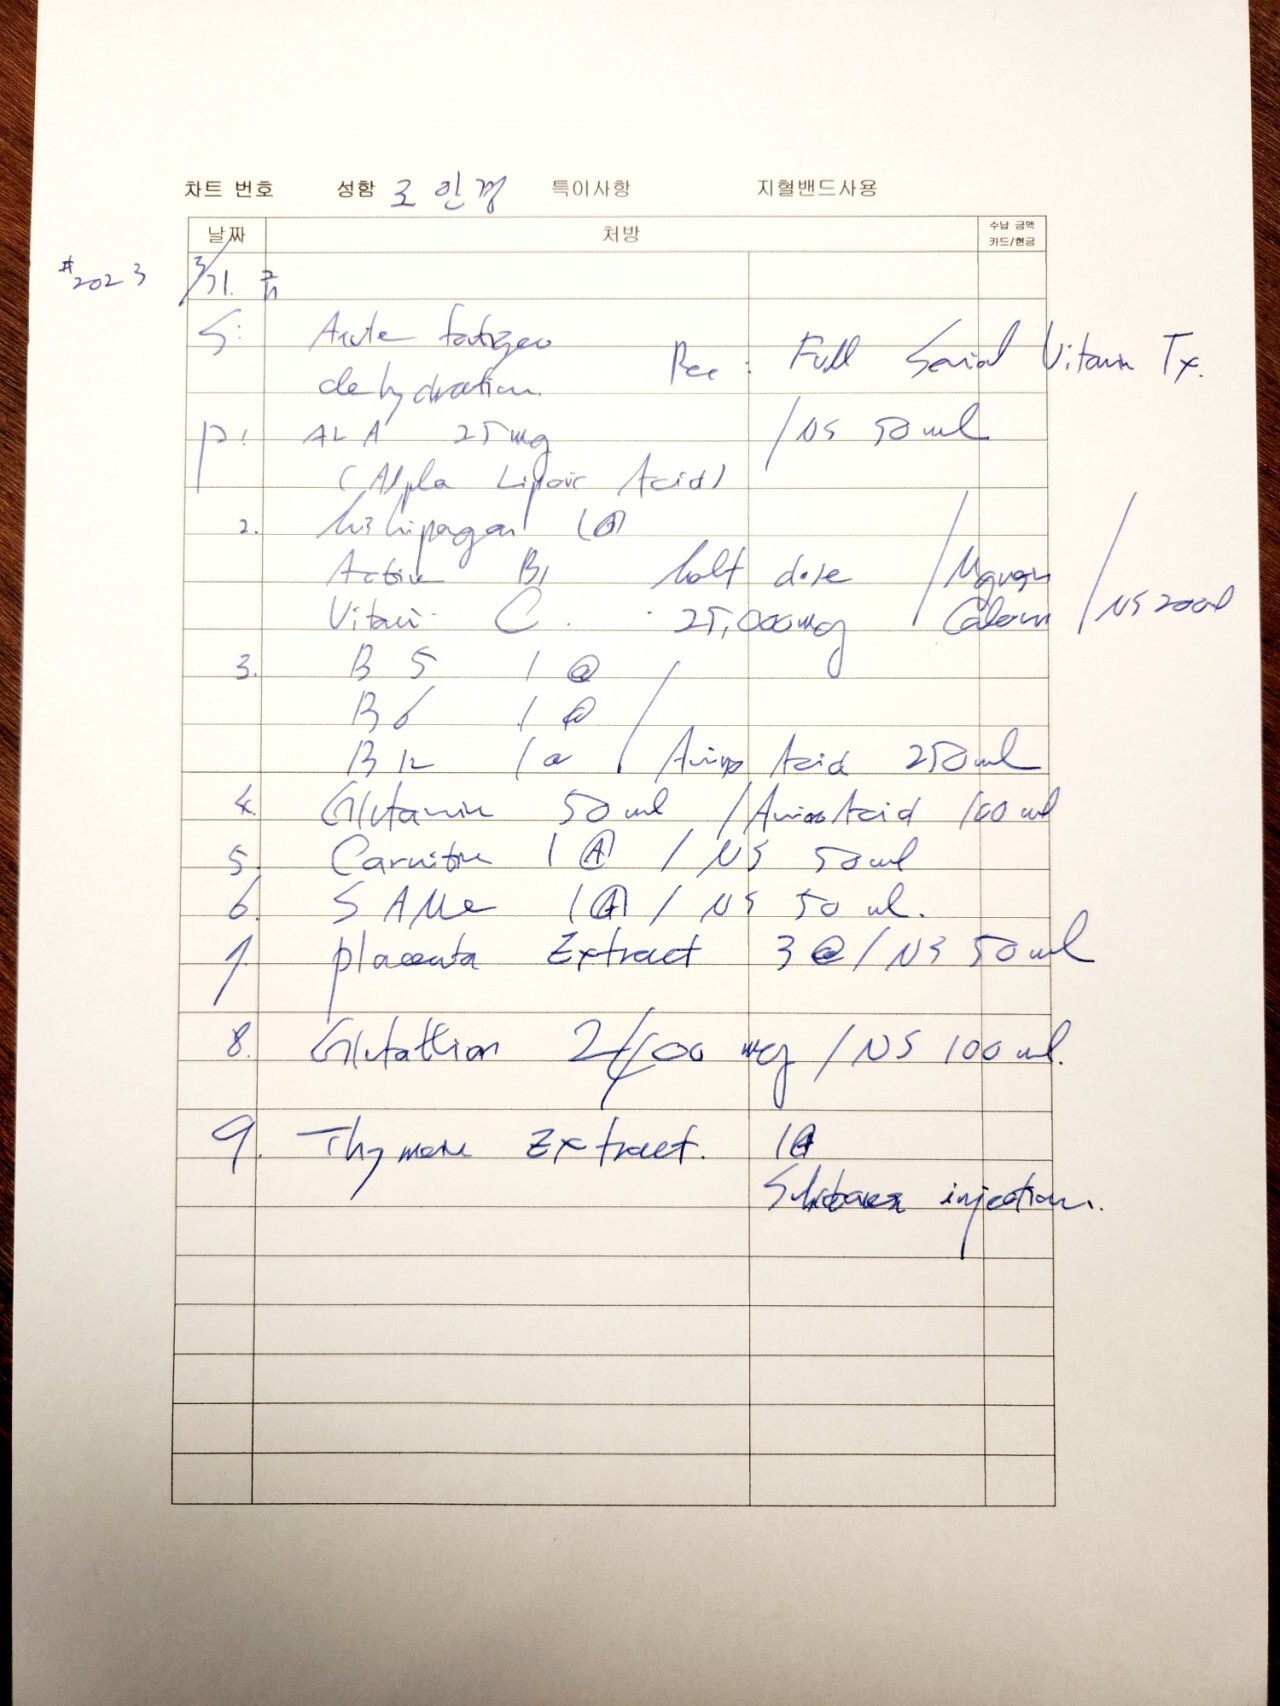 차트 번호 성함 로인경 특이사항 지혈밴드사용
날짜 처방 수납 금액
카드/현금
#2023 3/31. 금
S: Acute fatigeu
dehydration. Rec: Full Serial Vitamin Tx.
P: ALA 25mg /NS 50ml
(Alpla Lipoic Acid)
2. 1Ⓐ
Active B1 half dose
Vitami C. 25,000mg /NS 200ml
3. B5 1@
B6 1@
B12 1@ / Amino Acid 250ml
4. Glutamin 50ml /Amino Acid 100ml
5. Carnitin 1Ⓐ / NS 50ml
6. SAMe 1Ⓐ / NS 50ml.
7. placenta Extract 3@/NS 50ml
8. Glutathion 2400mg /NS 100ml.
9. Thymone Extract. 1Ⓐ
injection.